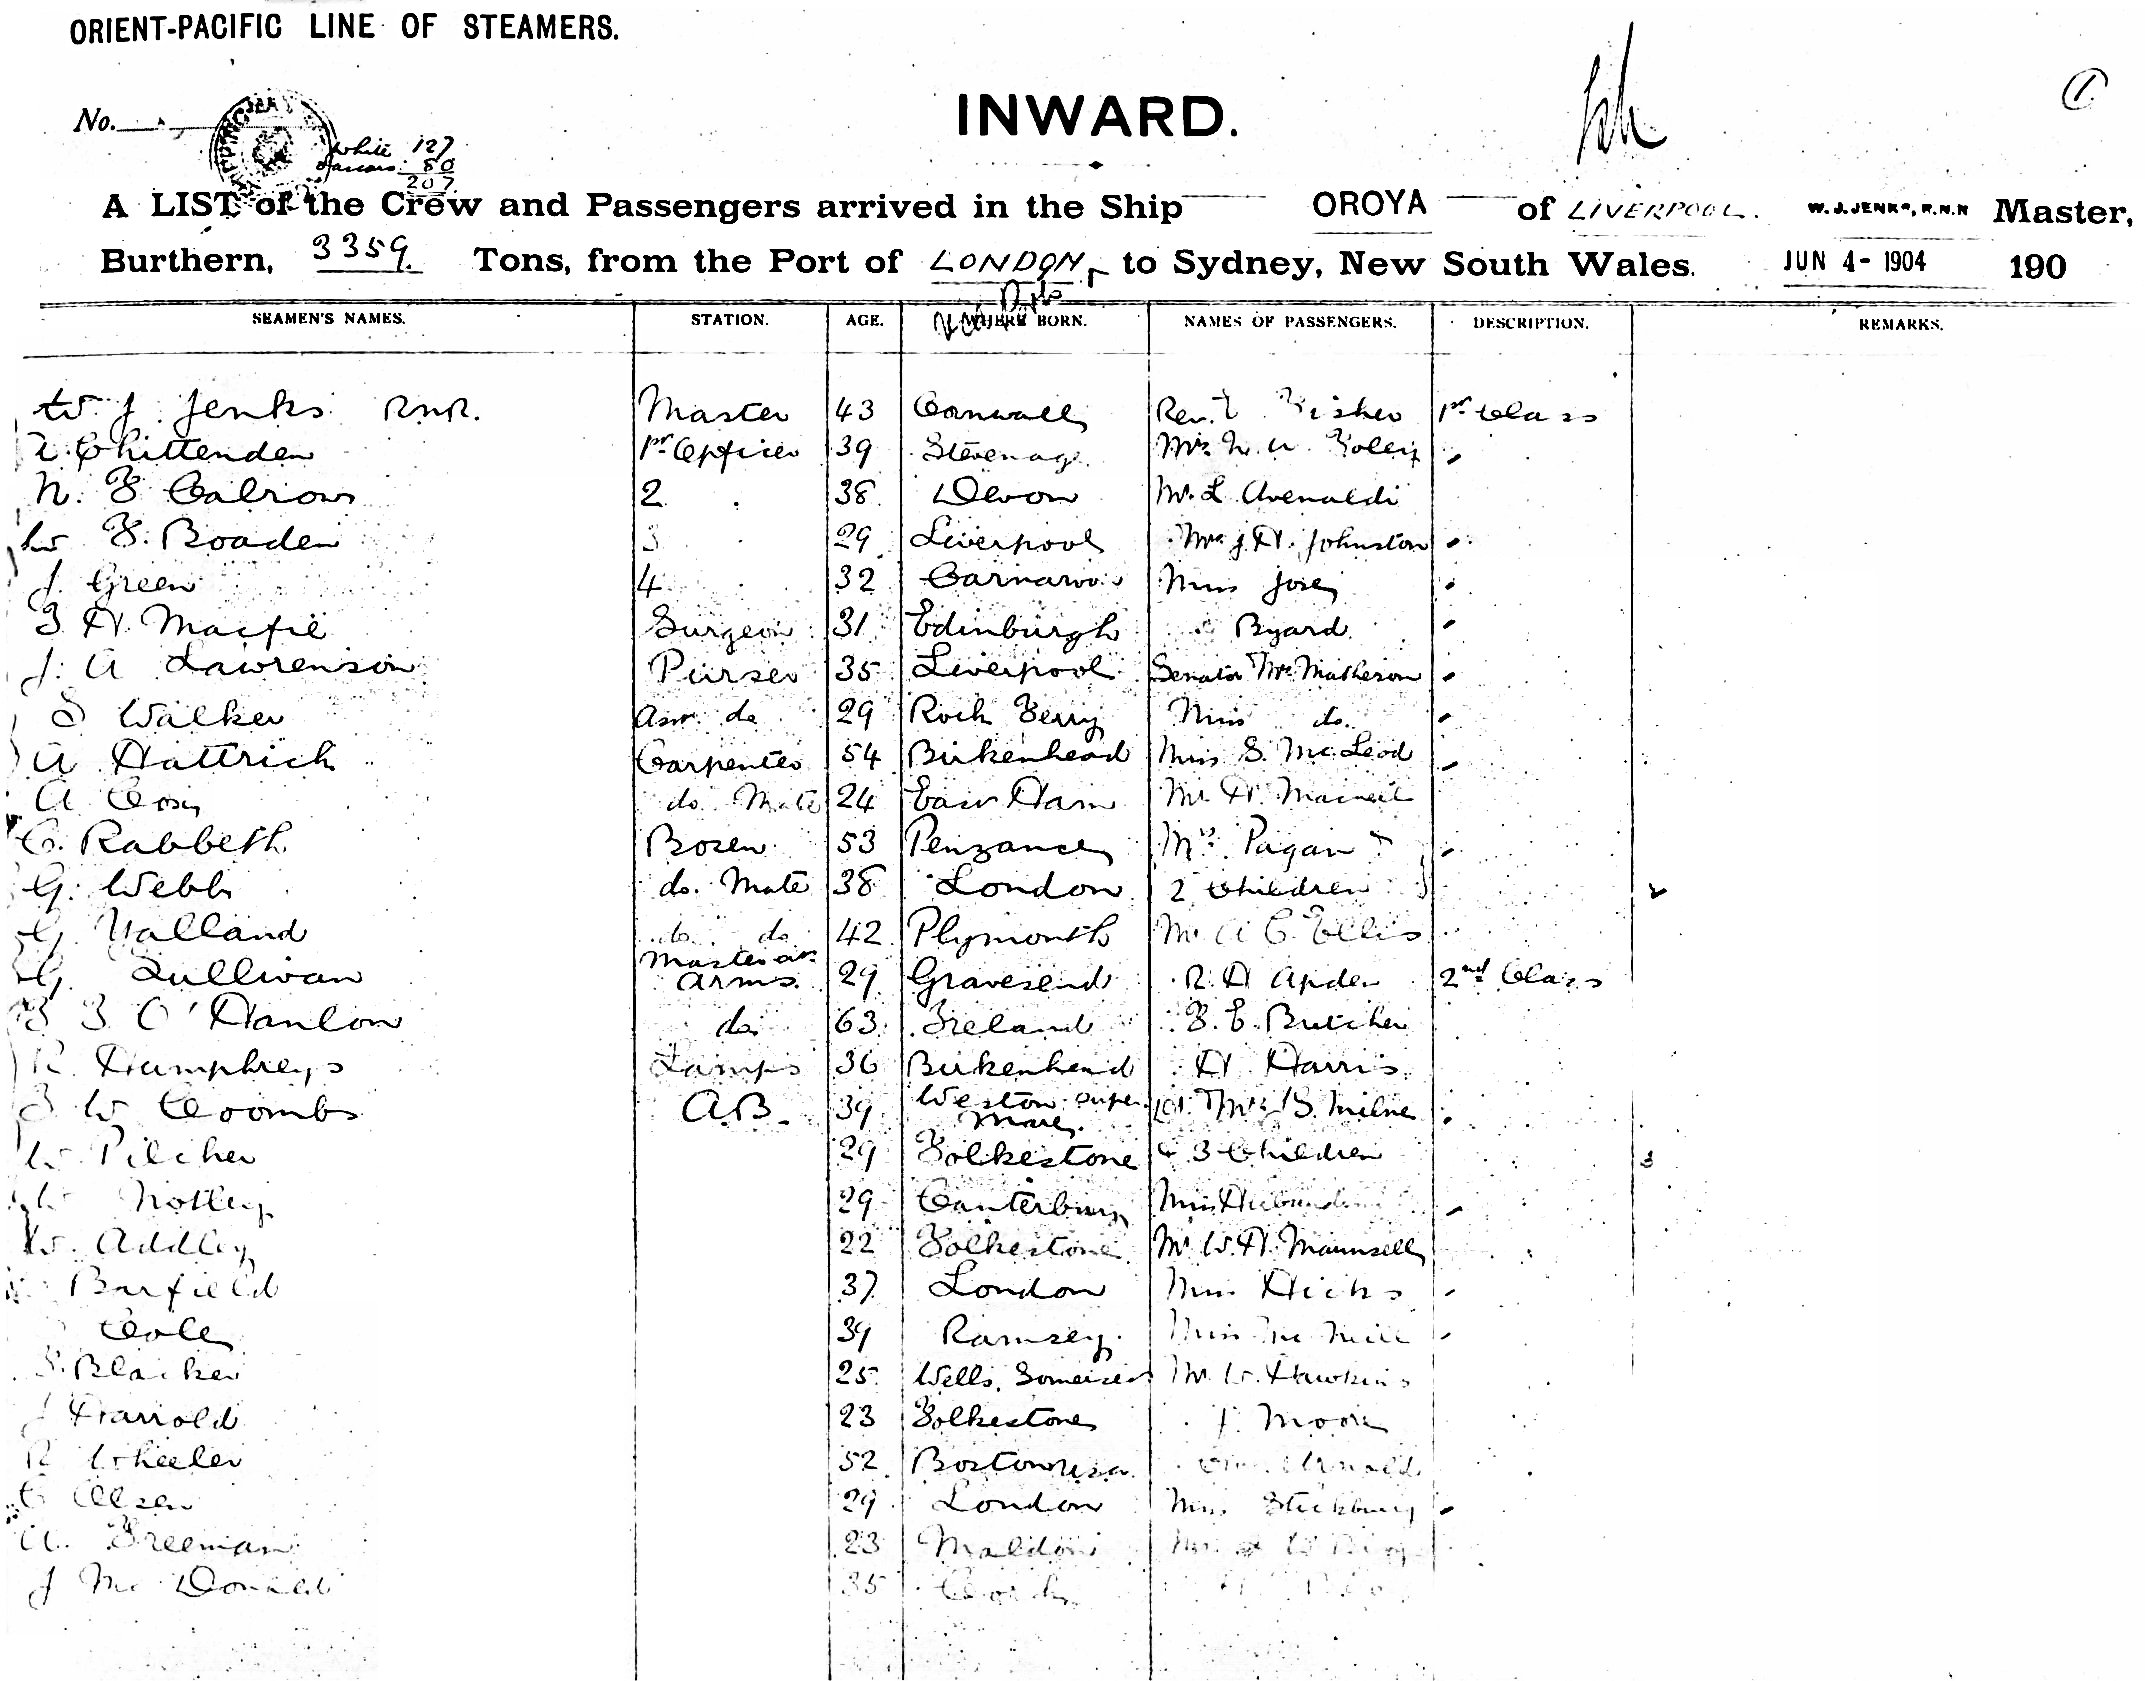 ORIENT-PACIFIC LINE OF STEAMERS.
No.
INWARD.
1
white 127
80
207
A LIST of the Crew and Passengers arrived in the Ship OROYA of LIVERPOOL. W. J. JENKS, R.N.R Master,
Burthern, 3359. Tons, from the Port of LONDON, to Sydney, New South Wales. JUN 4- 1904 190
SEAMEN'S NAMES. STATION. AGE. WHERE BORN. NAMES OF PASSENGERS. DESCRIPTION. REMARKS.
W. J. Jenks RNR. Master 43 Cornwall Rev. Fisher 1st Class
Chittenden 1st Officer 39 Stevenage
N. F. Calrow 2 38 Devon Mr. L. Avenaldi
W F. Boaden 3 29 Liverpool Mrs J. H. Johnston
J. Green 4 32 Carnarvon Miss Jose
F H. Macfie Surgeon 31 Edinburgh Byard
J. A Lawrenson Purser 35 Liverpool Senator Mrs Matheson
S Walker Asst do 29 Rock Ferry Miss do.
A Hattrick Carpenter 54 Birkenhead Miss S. McLeod
A Cox do. Mate 24 East Ham Mr H. Macneil
C. Rabbeth Bosen 53 Penzance Mrs. Pagan
G. Webb do. Mate 38 London 2 Children 2
G. Yalland do. do 42 Plymouth Mr A C. Ellis
G. Sullivan Master at Arms. 29 Gravesend R. H 2nd Class
F O'Hanlon do. 63 Ireland F. E. Butcher
R. Humphreys Lamps 36 Birkenhead H Harris
F W Coombs A.B. 39 Weston super Mare Mrs B. Milne
W. Pilcher 29 Folkestone & 3 Children 3
W Notley 29 Canterbury Miss
W. Addley 22 Folkestone Mr W. H. Maunsell
Barfield 37 London Miss Hicks
Cole 39 Ramsey Miss McNeill
S. Blacker 25 Wells, Somerset Mr. W. Hawkins
J Harrold 23 Folkestone J. Moore
R Wheeler 52 Boston USA Arnold
C Olsen 29 London Miss
A. Freeman 23 Maldon
J McDonald 35 Cork